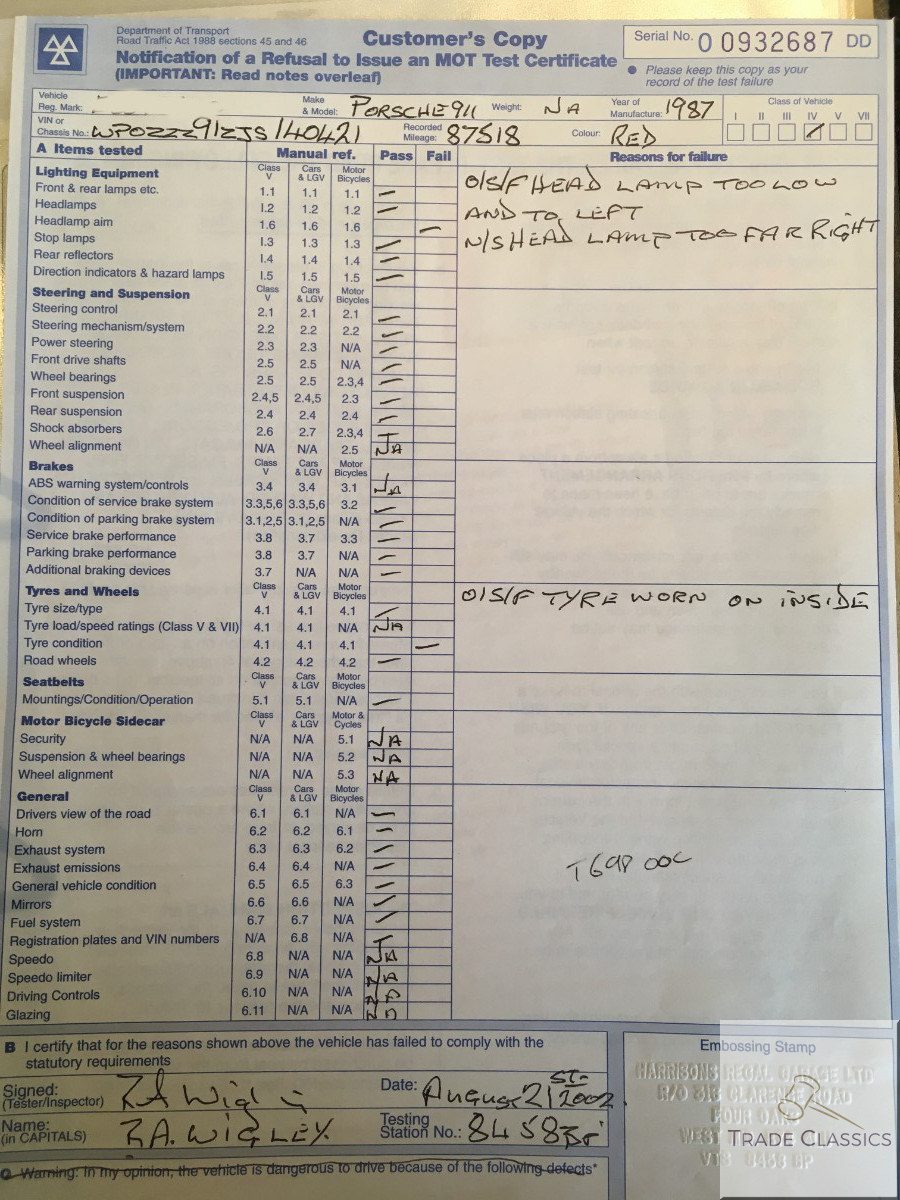 Department of Transport
Road Traffic Act 1988 sections 45 and 46
Customer's Copy
Notification of a Refusal to Issue an MOT Test Certificate
(IMPORTANT: Read notes overleaf)
Serial No. 0 0932687 DD
● Please keep this copy as your
record of the test failure
Vehicle
Reg. Mark:
Make
& Model: PORSCHE 911 Weight: NA Year of
Manufacture: 1987
Class of Vehicle
I II III IV V VII
VIN or
Chassis No.: WPOZZZ91ZJS140421 Recorded
Mileage: 87518 Colour: RED
A Items tested Manual ref. Pass Fail Reasons for failure
Lighting Equipment Class V Cars & LGV Motor Bicycles
O/S/F HEAD LAMP TOO LOW
Front & rear lamps etc. 1.1 1.1 1.1
Headlamps 1.2 1.2 1.2
AND TO LEFT
Headlamp aim 1.6 1.6 1.6
N/S HEAD LAMP TOO FAR RIGHT
Stop lamps 1.3 1.3 1.3
Rear reflectors 1.4 1.4 1.4
Direction indicators & hazard lamps 1.5 1.5 1.5
Steering and Suspension Class V Cars & LGV Motor Bicycles
Steering control 2.1 2.1 2.1
Steering mechanism/system 2.2 2.2 2.2
Power steering 2.3 2.3 N/A
Front drive shafts 2.5 2.5 N/A
Wheel bearings 2.5 2.5 2.3,4
Front suspension 2.4,5 2.4,5 2.3
Rear suspension 2.4 2.4 2.4
Shock absorbers 2.6 2.7 2.3,4
Wheel alignment N/A N/A 2.5 NA
Brakes Class V Cars & LGV Motor Bicycles
ABS warning system/controls 3.4 3.4 3.1 NA
Condition of service brake system 3.3,5,6 3.3,5,6 3.2
Condition of parking brake system 3.1,2,5 3.1,2,5 N/A
Service brake performance 3.8 3.7 3.3
Parking brake performance 3.8 3.7 N/A
Additional braking devices 3.7 N/A N/A
Tyres and Wheels Class V Cars & LGV Motor Bicycles
O/S/F TYRE WORN ON INSIDE
Tyre size/type 4.1 4.1 4.1
Tyre load/speed ratings (Class V & VII) 4.1 4.1 N/A NA
Tyre condition 4.1 4.1 4.1
Road wheels 4.2 4.2 4.2
Seatbelts Class V Cars & LGV Motor Bicycles
Mountings/Condition/Operation 5.1 5.1 N/A
Motor Bicycle Sidecar Class V Cars & LGV Motor & Cycles
Security N/A N/A 5.1 NA
Suspension & wheel bearings N/A N/A 5.2 NA
Wheel alignment N/A N/A 5.3 NA
General Class V Cars & LGV Motor Bicycles
Drivers view of the road 6.1 6.1 N/A
Horn 6.2 6.2 6.1
Exhaust system 6.3 6.3 6.2
Exhaust emissions 6.4 6.4 N/A
General vehicle condition 6.5 6.5 6.3
Mirrors 6.6 6.6 N/A
Fuel system 6.7 6.7 N/A
Registration plates and VIN numbers N/A 6.8 N/A
Speedo 6.8 N/A N/A NA
Speedo limiter 6.9 N/A N/A NA
Driving Controls 6.10 N/A N/A
Glazing 6.11 N/A N/A
B I certify that for the reasons shown above the vehicle has failed to comply with the
statutory requirements
Signed:
(Tester/Inspector)
Date: August 21ST 2002
Name:
(in CAPITALS) R.A. WIGLEY
Testing
Station No.:
Embossing Stamp
HARRISONS REGAL GARAGE LTD
CLARENCE ROAD
FOUR OAKS
WEST
VTS 8458
TRADE CLASSICS
C Warning: In my opinion, the vehicle is dangerous to drive because of the following defects*